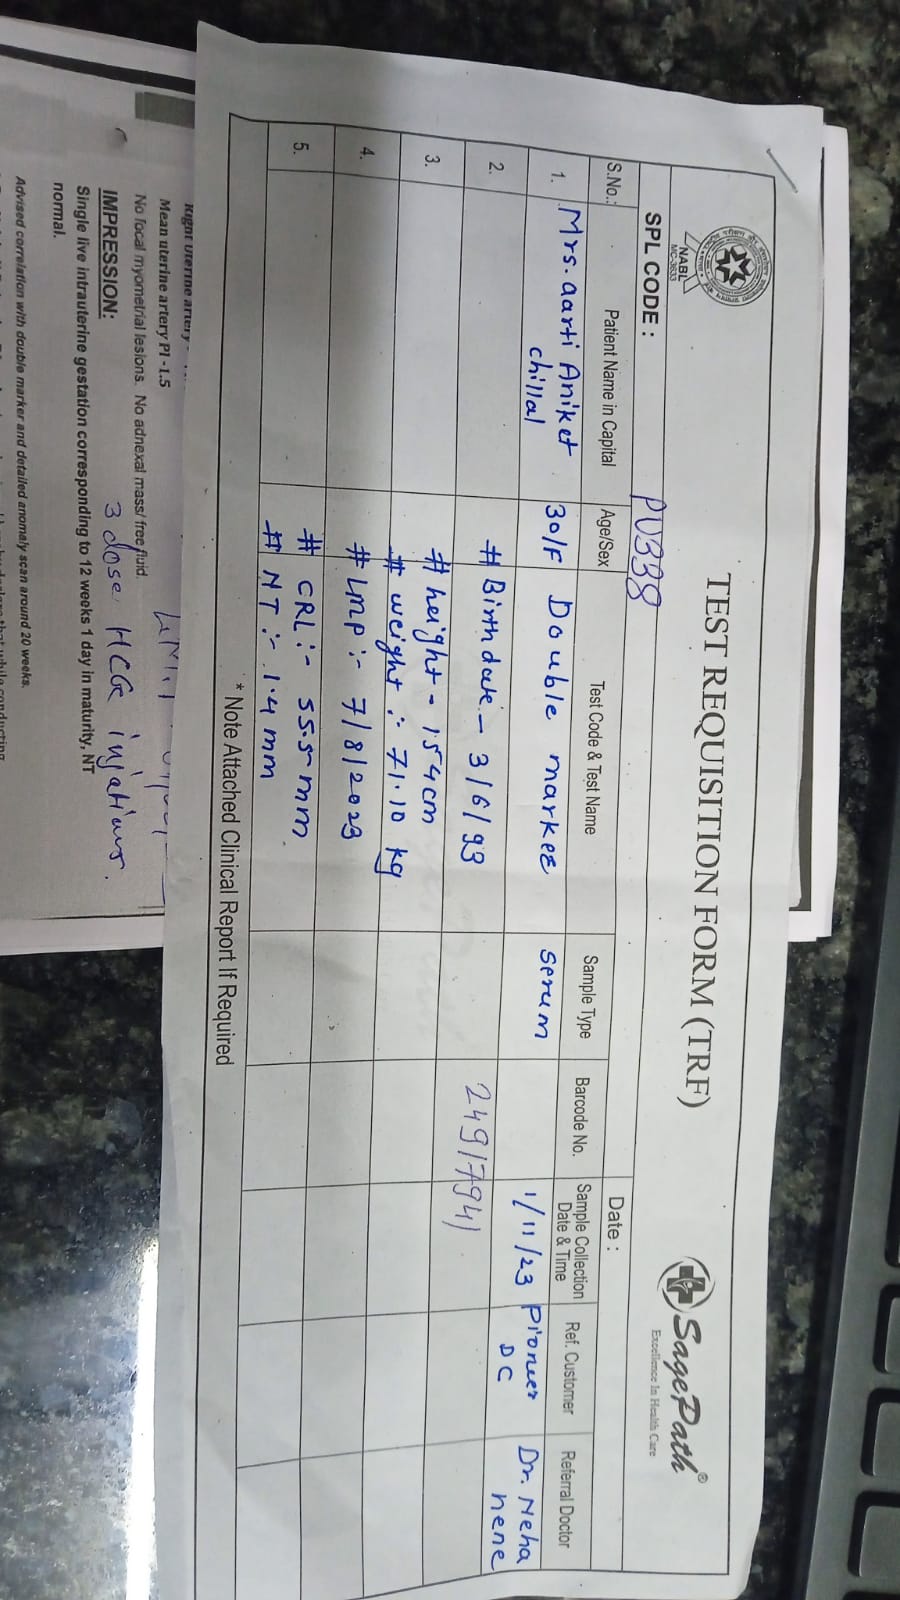 TEST REQUISITION FORM (TRF)
NABL
MC-3633
SagePath®
Excellence In Health Care
SPL CODE : PU338
Date :
S.No.: Patient Name in Capital Age/Sex Test Code & Test Name Sample Type Barcode No. Sample Collection Date & Time Ref. Customer Referral Doctor
1. Mrs. aarti Aniket chillal 30/F Double marker serum 1/11/23 Pioneer DC Dr. Neha nene
2. # Birthdate - 3/6/93 24917941
3. # height - 154cm
# weight :- 71.10 kg
4. # LMP :- 7/8/2023
5. # CRL :- 55.5 mm
# NT :- 1.4 mm
* Note Attached Clinical Report If Required
Right uterine artery -
Mean uterine artery PI - 1.5
No focal myometrial lesions. No adnexal mass/ free fluid.
IMPRESSION: 3 dose HCG injections.
Single live intrauterine gestation corresponding to 12 weeks 1 day in maturity, NT
normal.
Advised correlation with double marker and detailed anomaly scan around 20 weeks.